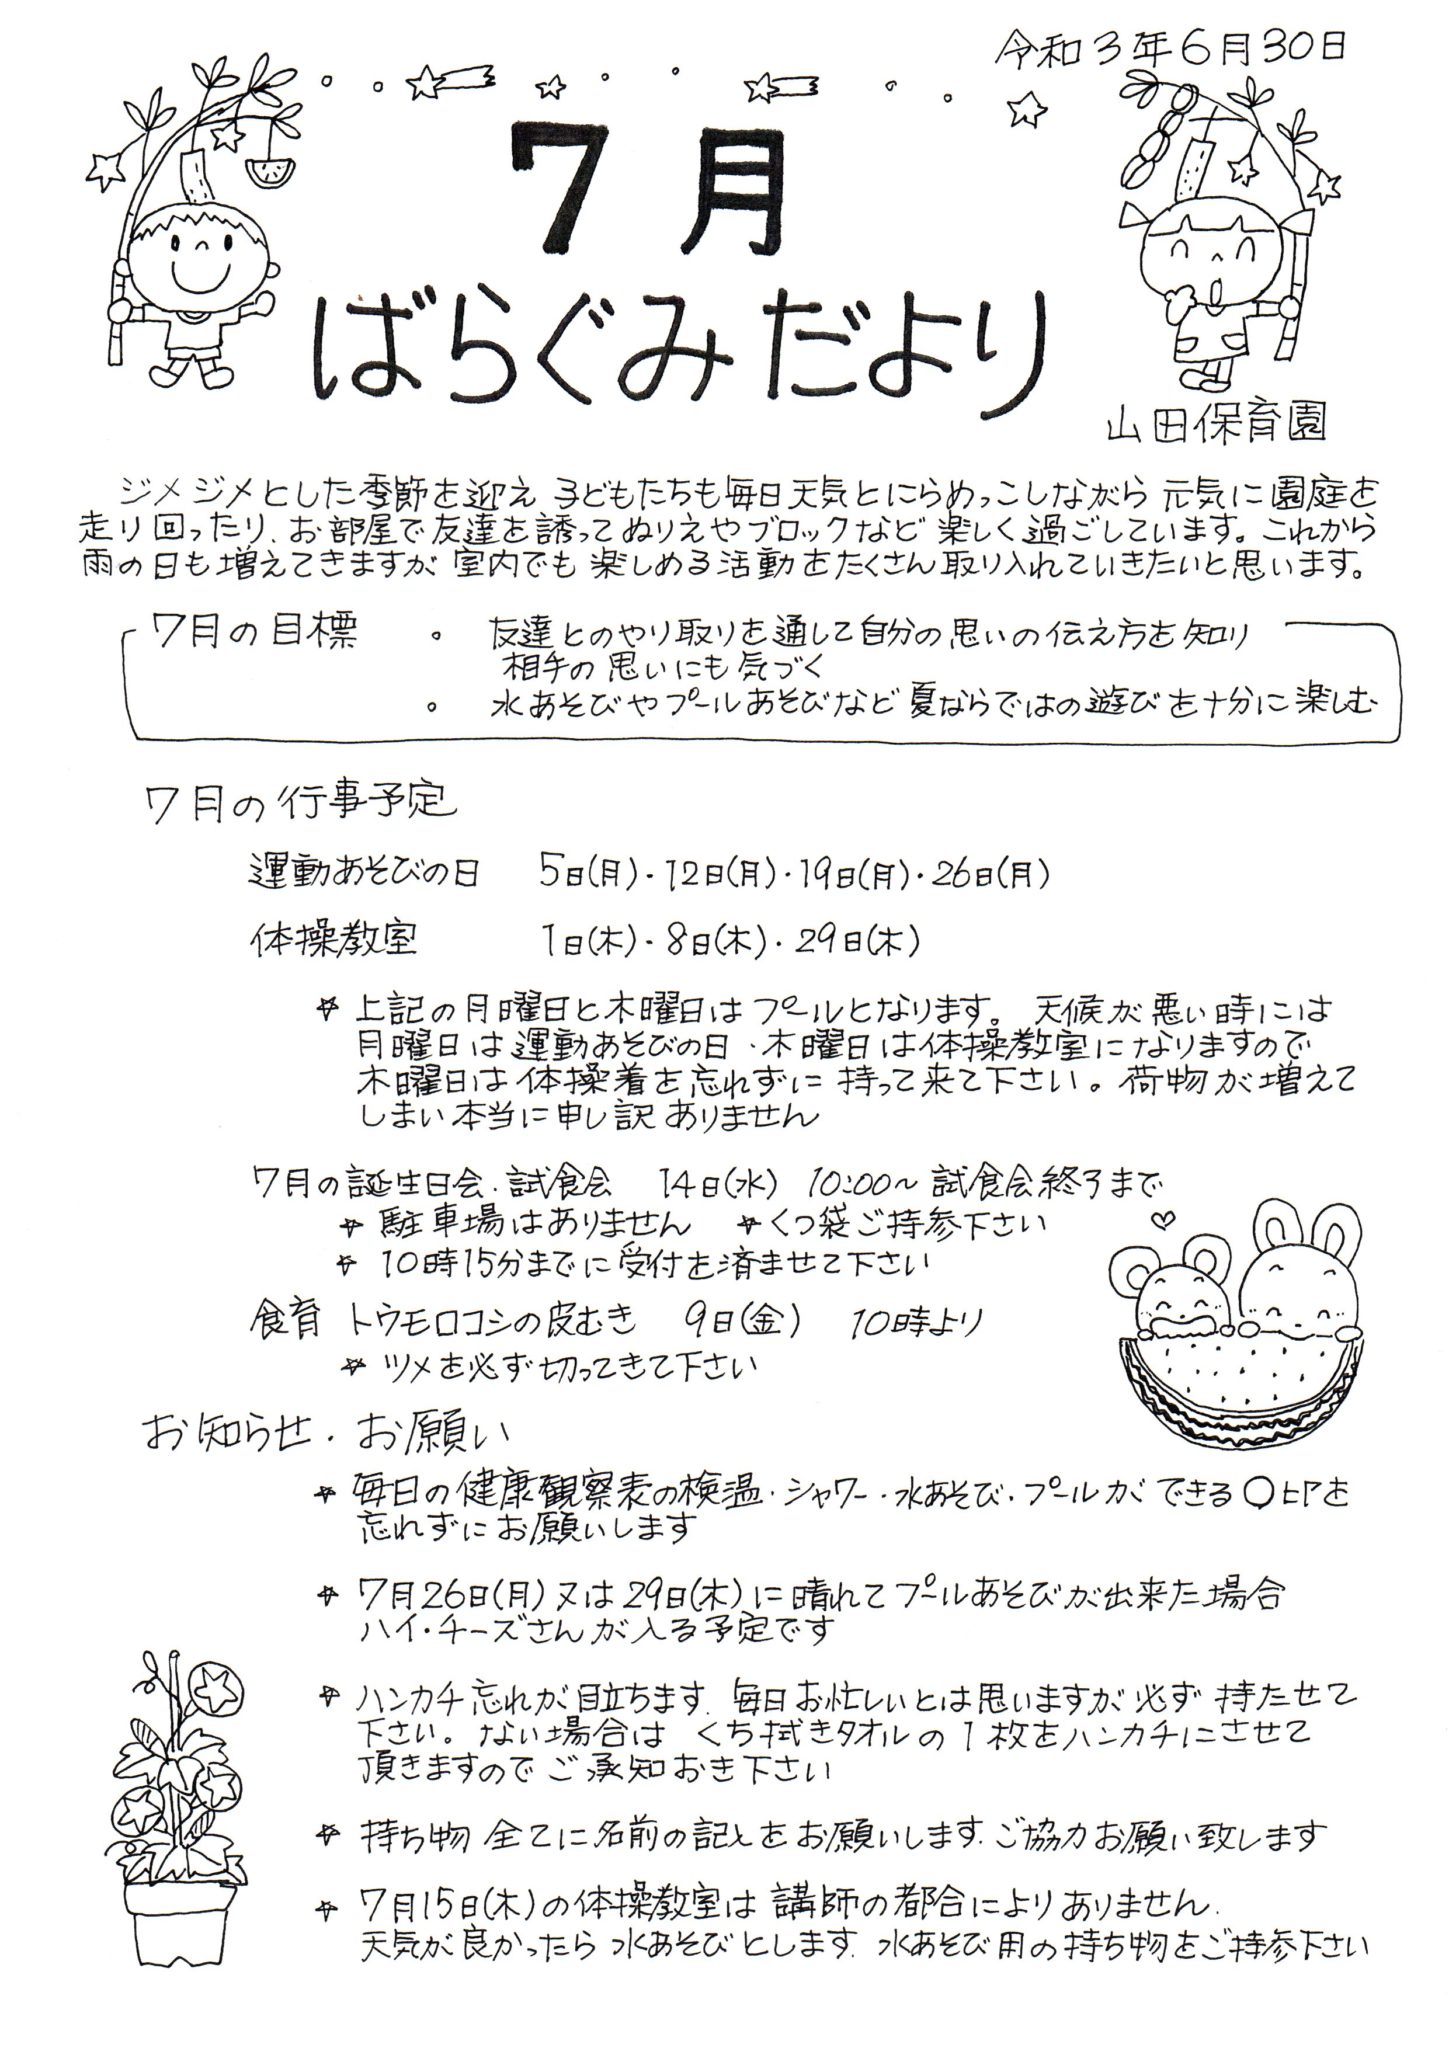 令和3年6月30日
7月
ばらぐみだより
山田保育園
ジメジメとした季節を迎え 子どもたちも毎日天気とにらめっこしながら 元気に園庭を
走り回ったり、お部屋で友達を誘ってぬりえやブロックなど 楽しく過ごしています。これから
雨の日も増えてきますが 室内でも楽しめる活動をたくさん取り入れていきたいと思います。
7月の目標 。 友達とのやり取りを通して自分の思いの伝え方を知り
相手の思いにも気づく
。 水あそびやプールあそびなど夏ならではの遊びを十分に楽しむ
7月の行事予定
運動あそびの日 5日(月)・12日(月)・19日(月)・26日(月)
体操教室 1日(木)・8日(木)・29日(木)
☆ 上記の月曜日と木曜日はプールとなります。 天候が悪い時には
月曜日は運動あそびの日・木曜日は体操教室になりますので
木曜日は体操着を忘れずに持って来て下さい。荷物が増えて
しまい本当に申し訳ありません
7月の誕生日会・試食会 14日(水) 10:00〜 試食会終了まで
☆ 駐車場はありません ☆くつ袋ご持参下さい
☆ 10時15分までに受付を済ませて下さい
食育 トウモロコシの皮むき 9日(金) 10時より
☆ ツメを必ず切ってきて下さい
お知らせ・お願い
☆ 毎日の健康観察表の検温・シャワー・水あそび・プールができる○印を
忘れずにお願いします
☆ 7月26日(月)又は29日(木)に晴れてプールあそびが出来た場合
ハイ・チーズさんが入る予定です
☆ ハンカチ忘れが目立ちます。毎日お忙しいとは思いますが必ず持たせて
下さい。ない場合は くち拭きタオルの1枚をハンカチにさせて
頂きますのでご承知おき下さい
☆ 持ち物全てに名前の記入をお願いします。ご協力お願い致します
☆ 7月15日(木)の体操教室は講師の都合によりありません。
天気が良かったら水あそびとします。水あそび用の持ち物をご持参下さい